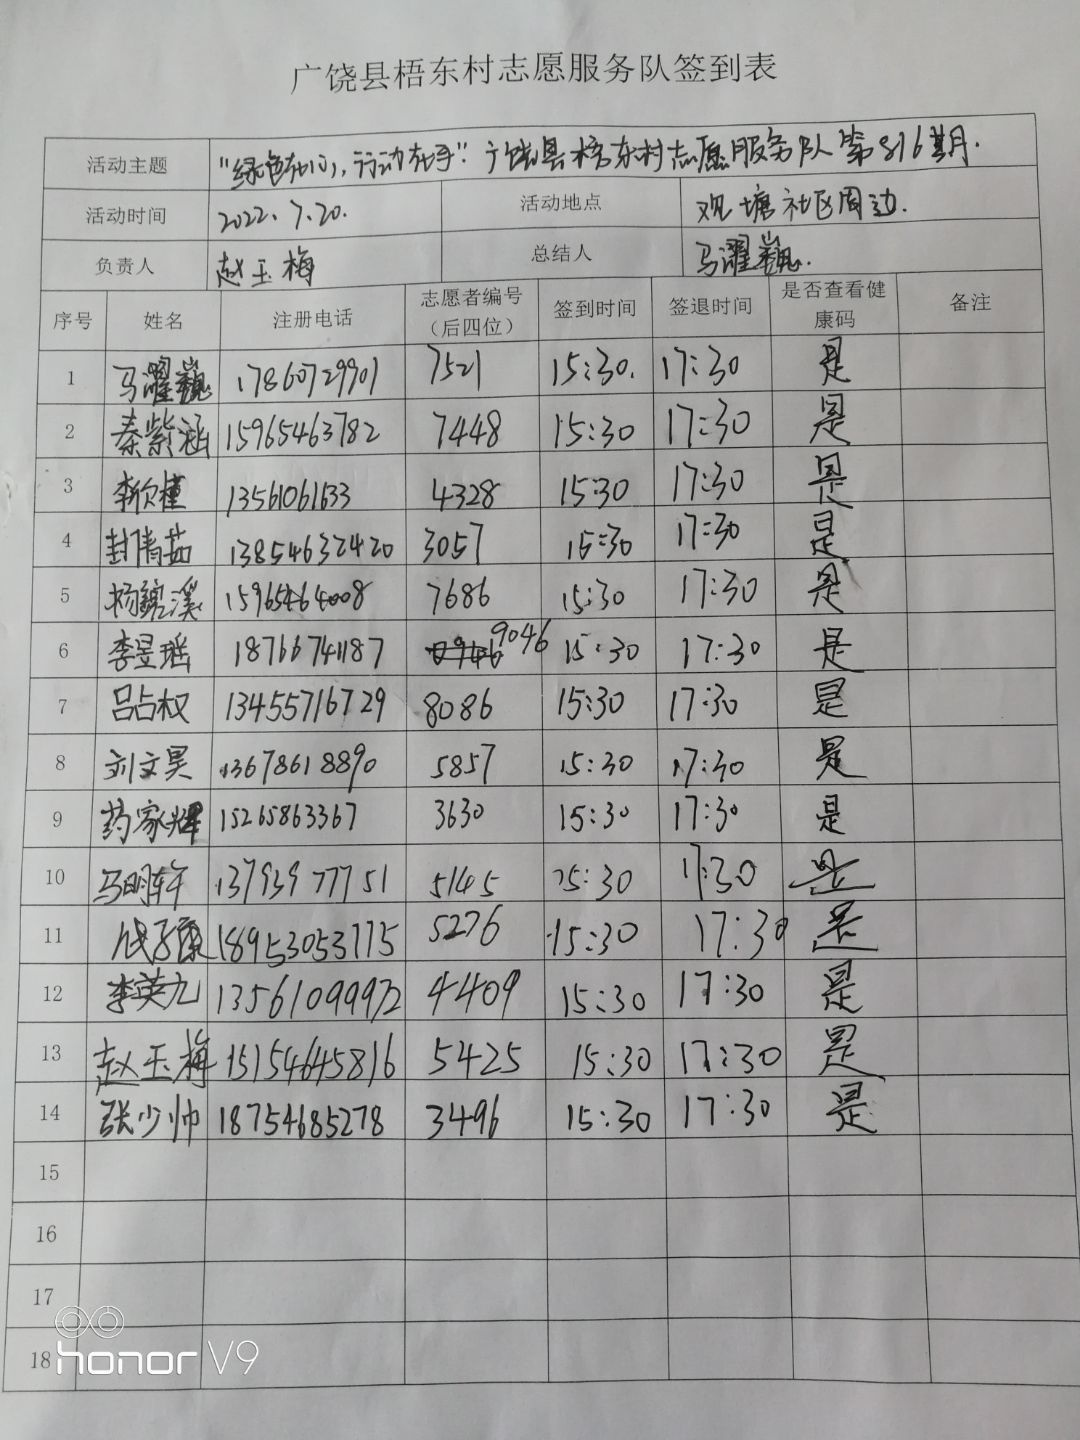 广饶县梧东村志愿服务队签到表
活动主题 "绿色在心,行动在手".广饶县梧东村志愿服务队第816期.
活动时间 2022.7.20. 活动地点 观塘社区周边.
负责人 赵玉梅 总结人 马濯巍.
序号 姓名 注册电话 志愿者编号（后四位） 签到时间 签退时间 是否查看健康码 备注
1 马濯巍 17860729901 7521 15:30. 17:30 是
2 秦紫涵 15965463782 7448 15:30 17:30 是
3 13561061633 4328 15:30 17:30 是
4 封倩茹 13854632420 3057 15:30 17:30 是
5 15965464008 7686 15:30 17:30 是
6 李昱瑶 18766741187 9046 15:30 17:30 是
7 吕占权 13455716729 8086 15:30 17:30 是
8 刘文昊 13678618890 5857 15:30 17:30 是
9 药家辉 15265863367 3630 15:30 17:30 是
10 马明轩 13793977751 5145 15:30 17:30 是
11 18953053775 5276 15:30 17:30 是
12 李英九 13561099972 4409 15:30 17:30 是
13 赵玉梅 15154645816 5425 15:30 17:30 是
14 张少帅 18754685278 3496 15:30 17:30 是
15
16
17
18
honor V9